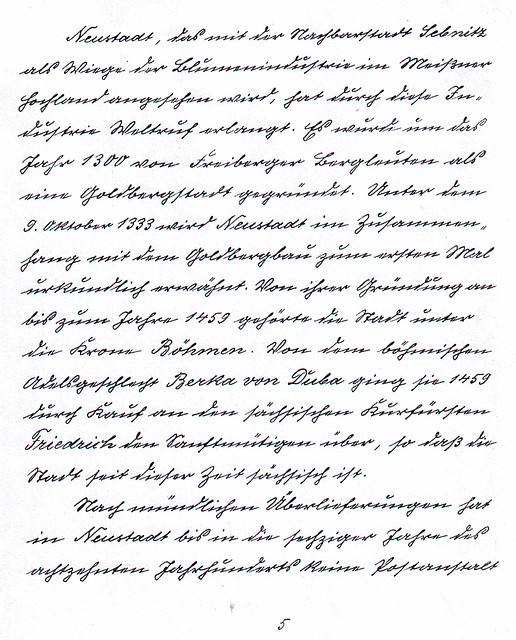 Neustadt, das mit der Nachbarstadt Sebnitz
als Wiege der Blumenindustrie im Meißner
Hochland angesehen wird, hat durch diese In-
dustrie Weltruf erlangt. Es wurde um das
Jahr 1300 von Freiberger Bergleuten als
eine Goldbergstadt gegründet. Unter dem
9. Oktober 1333 wird Neustadt im Zusammen-
hang mit dem Goldbergbau zum ersten Mal
urkundlich erwähnt. Von ihrer Gründung an
bis zum Jahre 1459 gehörte die Stadt unter
die Krone Böhmen. Von dem böhmischen
Adelsgeschlecht Berka von Duba ging sie 1459
durch Kauf an den sächsischen Kurfürsten
Friedrich den Sanftmütigen über, so daß die
Stadt seit dieser Zeit sächsisch ist.
Nach mündlichen Überlieferungen hat
in Neustadt bis in die sechziger Jahre des
achtzehnten Jahrhunderts keine Postanstalt
5